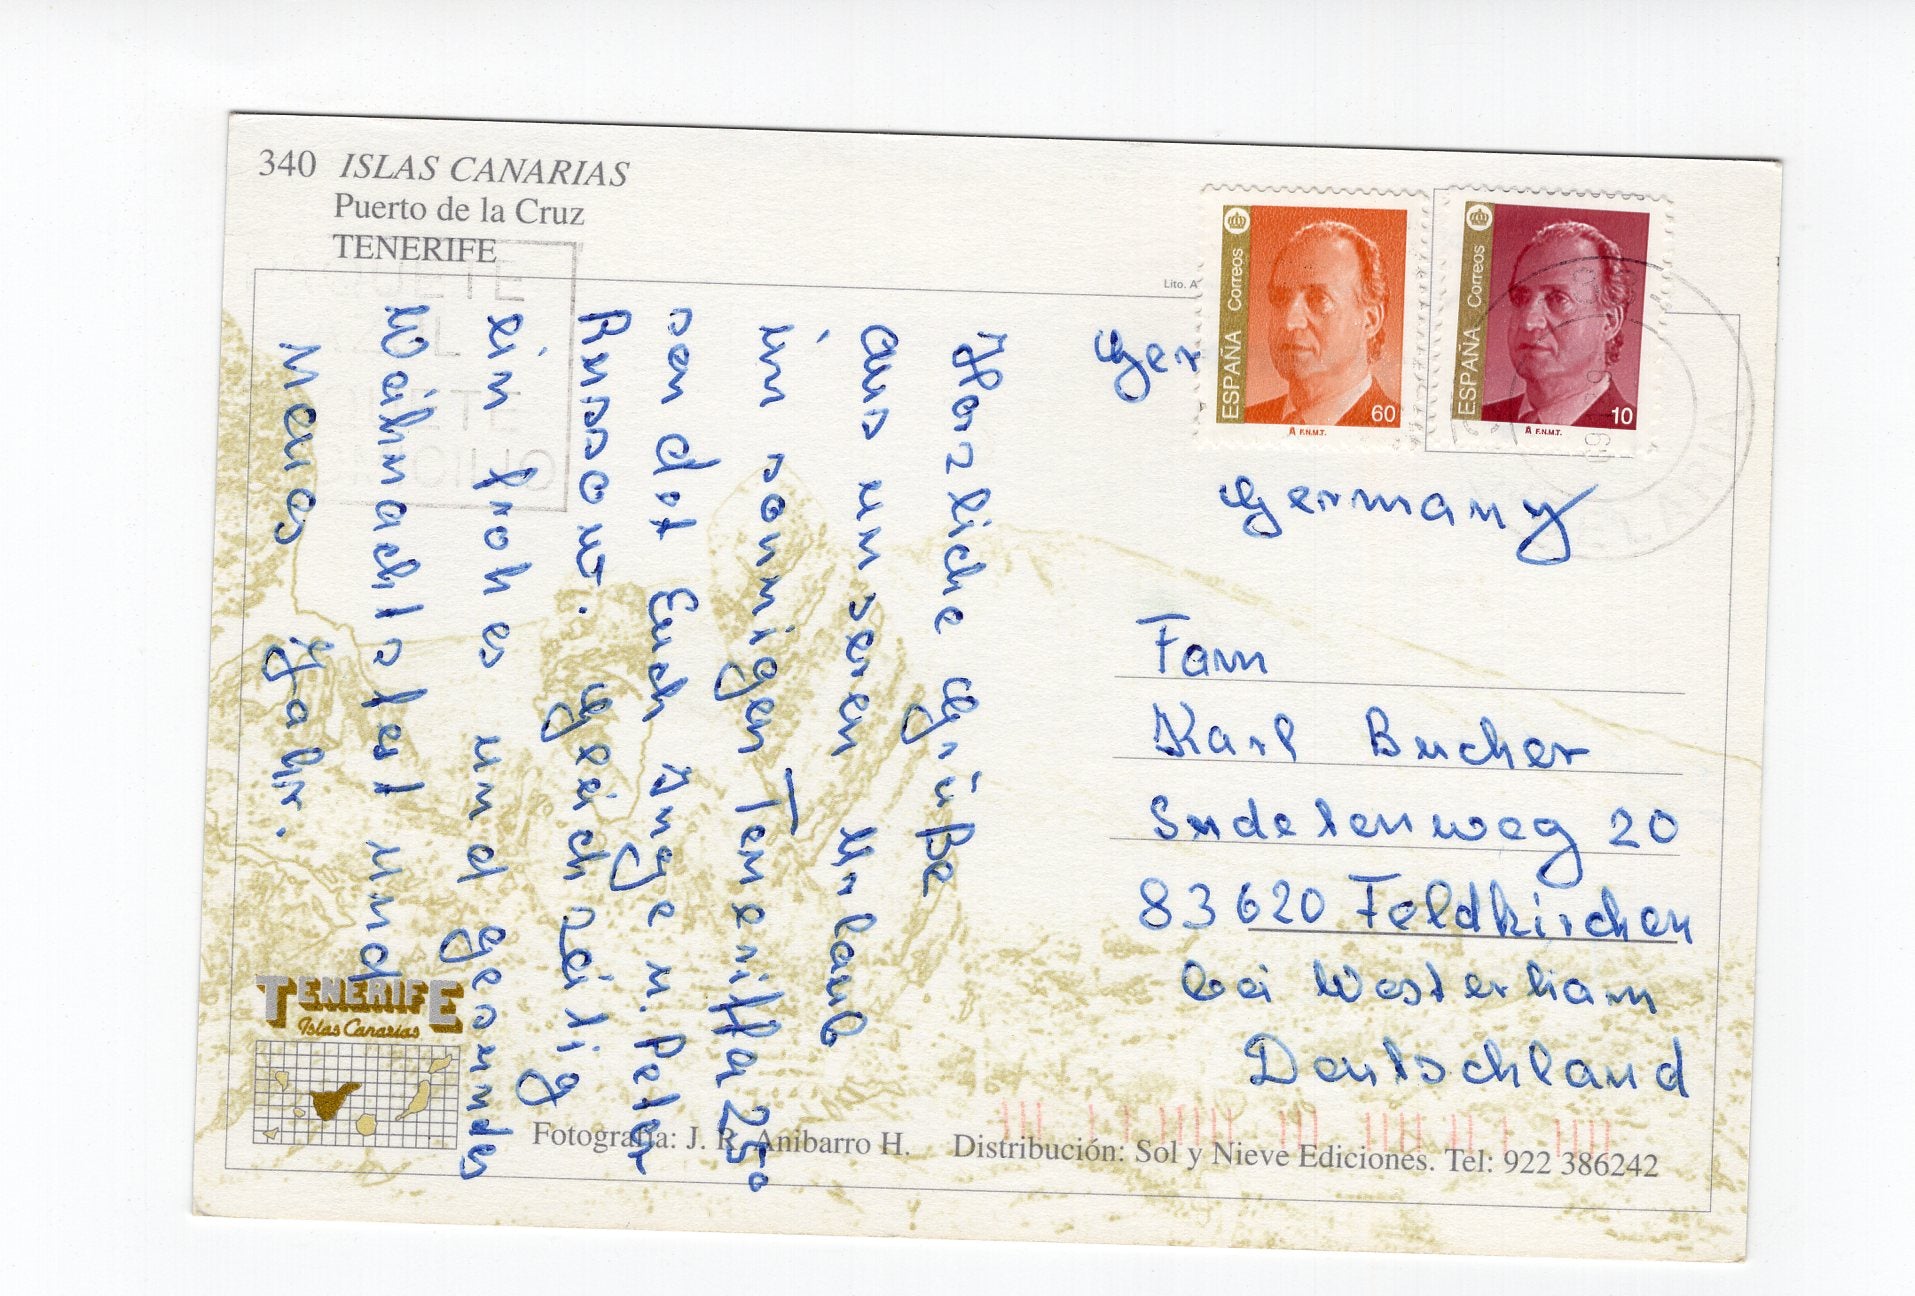 340 ISLAS CANARIAS
Puerto de la Cruz
TENERIFE
Lito. A
ESPAÑA Correos
60
A F.N.M.T.
ESPAÑA Correos
10
A F.N.M.T.
Ger
Germany
Herzliche Grüße
aus unseren Urlaub
im sonnigen Teneriffa 25°
sendet Euch Inge u. Peter
Russow. Gleich zeitig
ein frohes und gesundes
Weihnachtsfest und
Neues Jahr.
Fam
Karl Bucher
Sudetenweg 20
83620 Feldkirchen
bei Westerham
Deutschland
TENERIFE
Islas Canarias
Fotografía: J. R. Anibarro H. Distribución: Sol y Nieve Ediciones. Tel: 922 386242